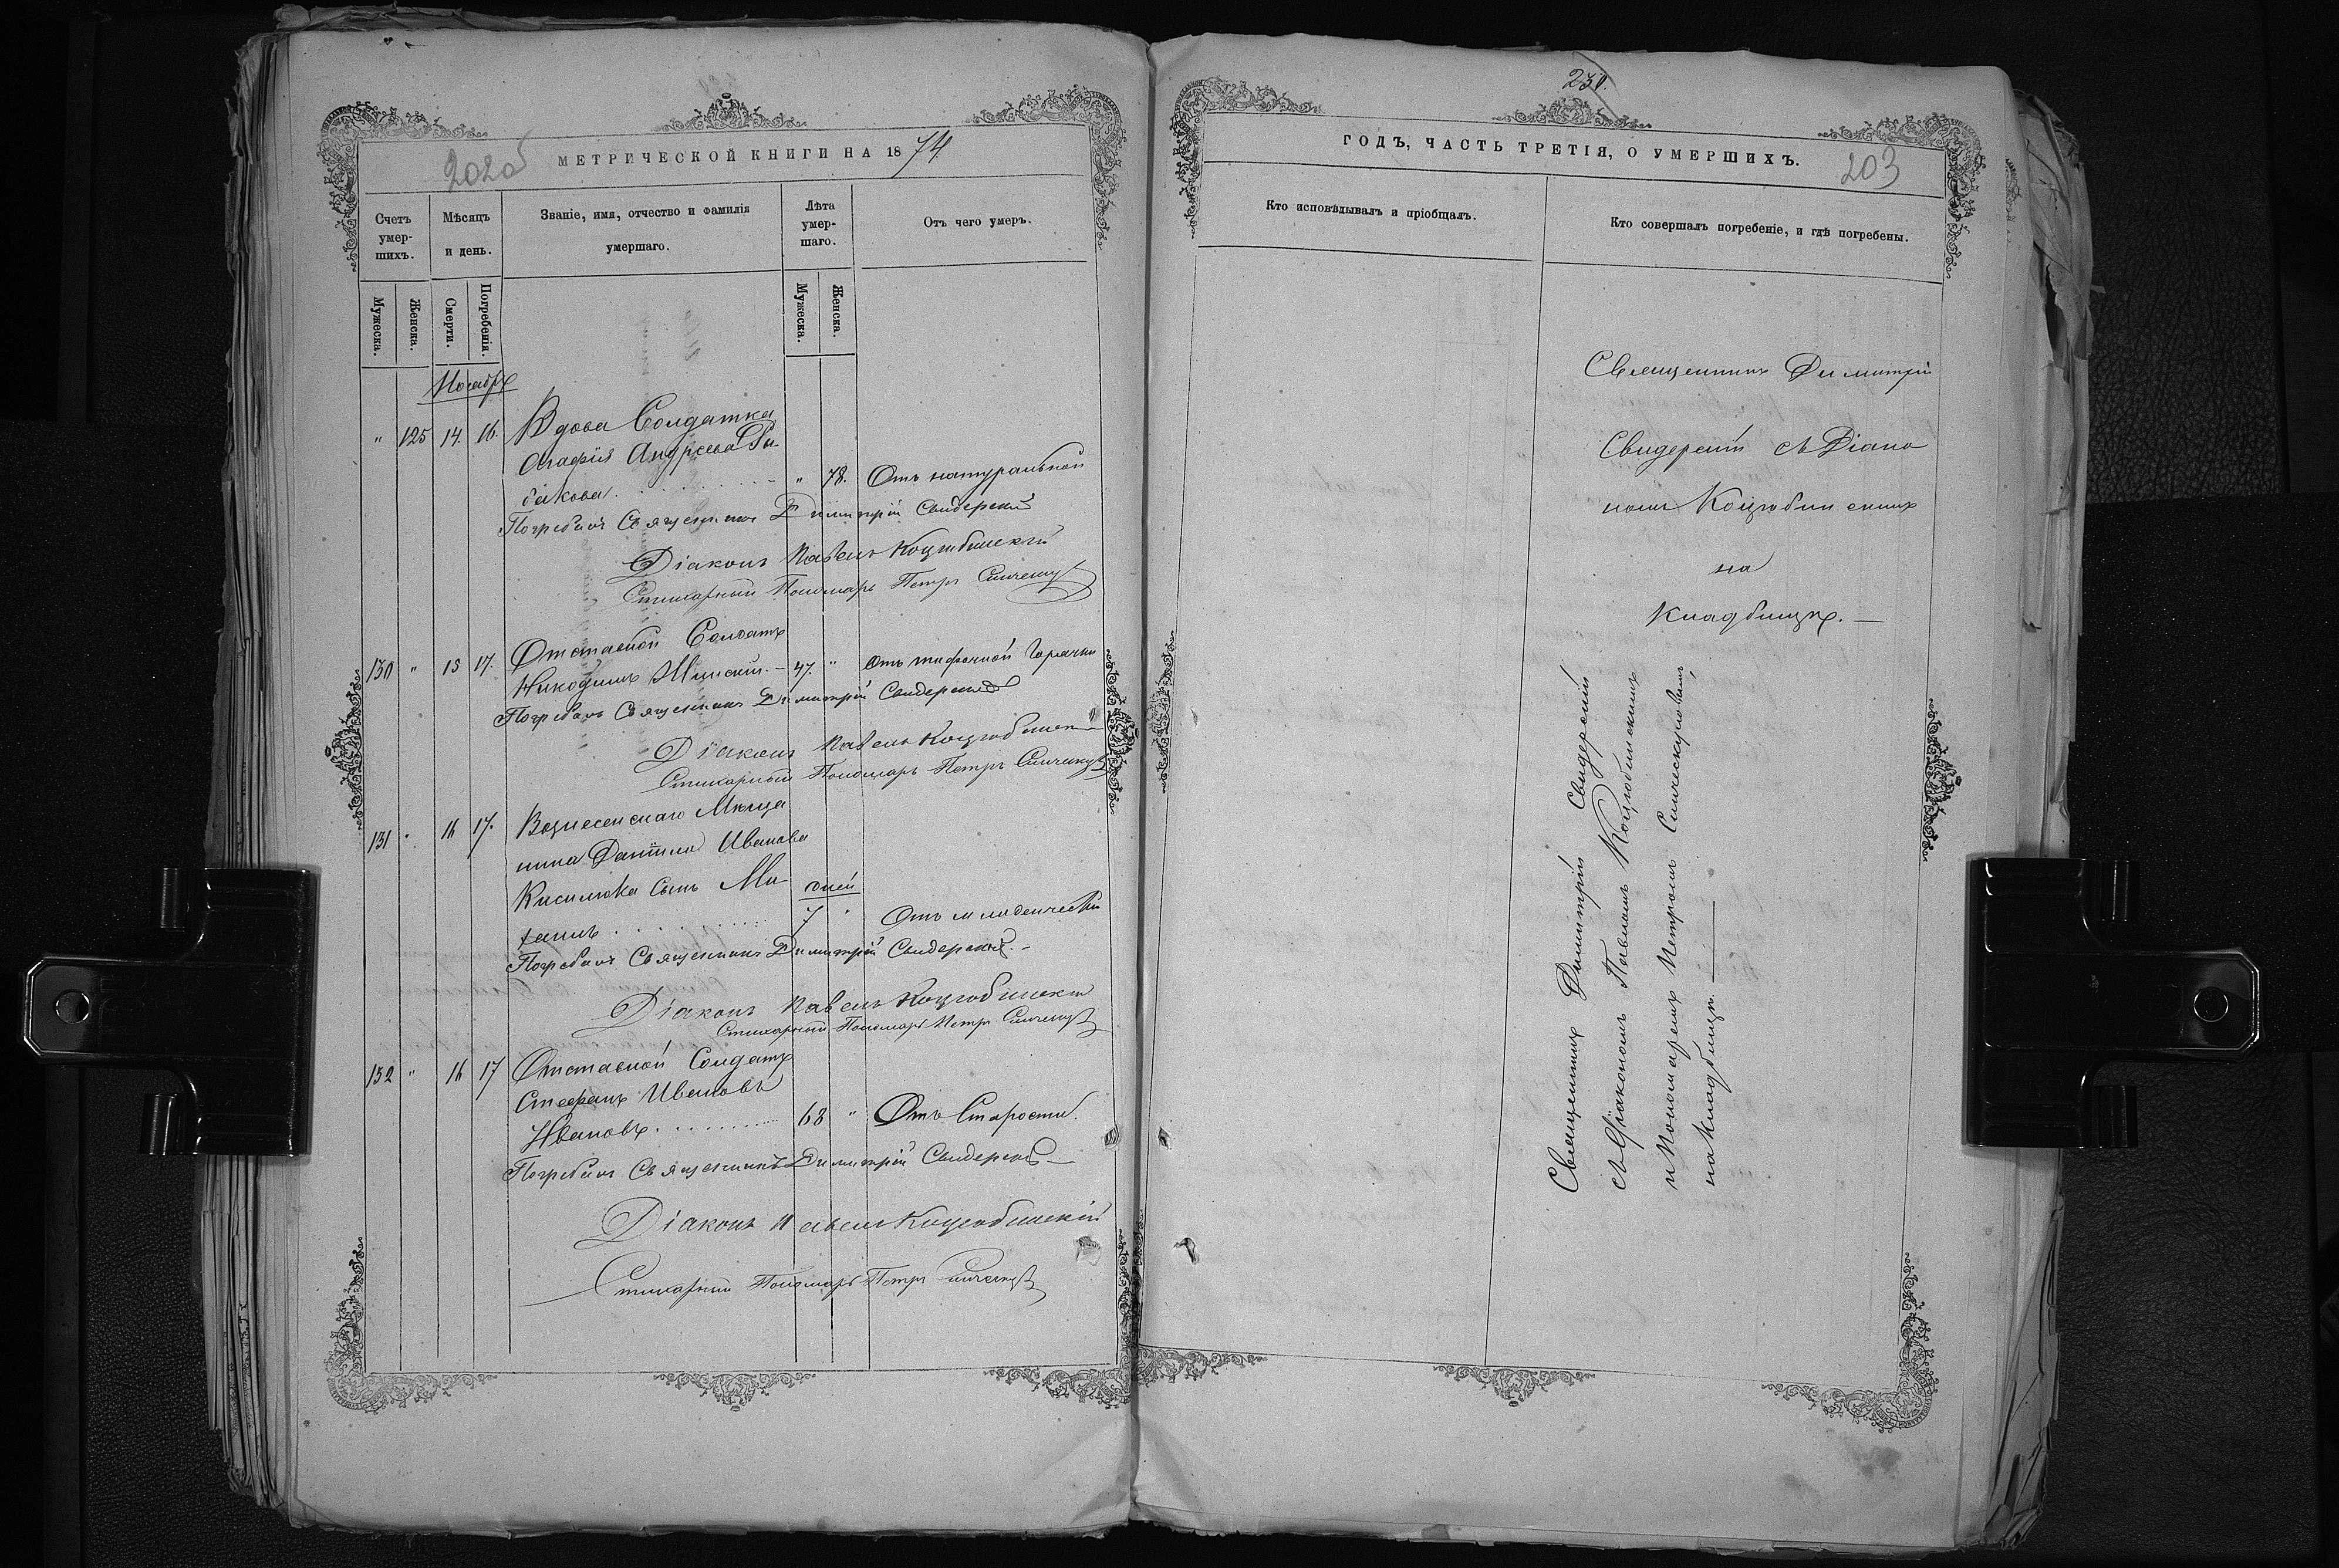 202об
МЕТРИЧЕСКОЙ КНИГИ НА 1874
Счетъ умер-шихъ.
Мѣсяцъ и день.
Званіе, имя, отчество и фамилія умершаго.
Лѣта умер-шаго.
Отъ чего умеръ.
Мужеска.
Женска.
Смерти.
Погребенія.
Мужеска.
Женска.
Ноября
" 125 14. 16. Вдова Солдатка
Агафія Андреева Ры-
бакова . . . . . . " 78. Отъ натуральной
Погребалъ Священникъ Димитрій Свидерскій
Діаконъ Павелъ Коцюбинскій
Стихарный Пономарь Петръ
130 " 15 17. Отставной Солдатъ
Никодимъ - 47. " Отъ тифозной Горячки
Погребалъ Священникъ Димитрій Свидерскій
Діаконъ Павелъ Коцюбинскій
Стихарный Пономарь Петръ
131 " 16 17. Вознесенскаго Мѣща
нина Даніила Иванова
Касилюка Сынъ Ми- дней
хаилъ . . . . . . 7 " Отъ младенческой
Погребалъ Священникъ Димитрій Свидерскій. -
Діаконъ Павелъ Коцюбинскій
Стихарный Пономарь Петръ
132 " 16 17 Отставной Солдатъ
Стефанъ Ивановъ
Ивановъ . . . . . . 68 " Отъ Старости.
Погребалъ Священникъ Димитрій Свидерскій
Діаконъ Павелъ Коцюбинскій
Стихарный Пономарь Петръ
230.
ГОДЪ, ЧАСТЬ ТРЕТІЯ, О УМЕРШИХЪ.
203
Кто исповѣдывалъ и пріобщалъ.
Кто совершалъ погребеніе, и гдѣ погребены.
Священникъ Димитрій
Свидерскій съ Діако
номъ Коцюбинскимъ
на
Кладбищѣ. —
Священникъ Димитрій Свидерскій
съ Діакономъ Павломъ Коцюбинскимъ
и Пономаремъ Петромъ
на Кладбищѣ. —